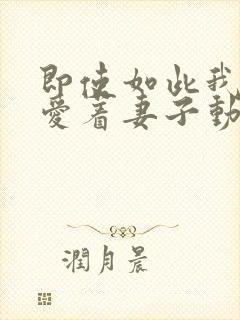 即使如此我
愛着妻子動
潤月晨